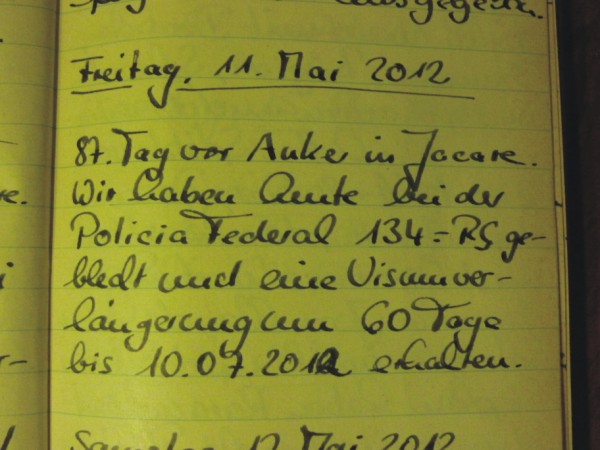 ausgegeben.
Freitag, 11. Mai 2012
87. Tag vor Anker in Jacare.
Wir haben heute bei der
Policia Federal 134,- R$ ge-
blecht und eine Visumver-
längerung um 60 Tage
bis 10.07.2012 erhalten.
Samstag, 12. Mai 2012